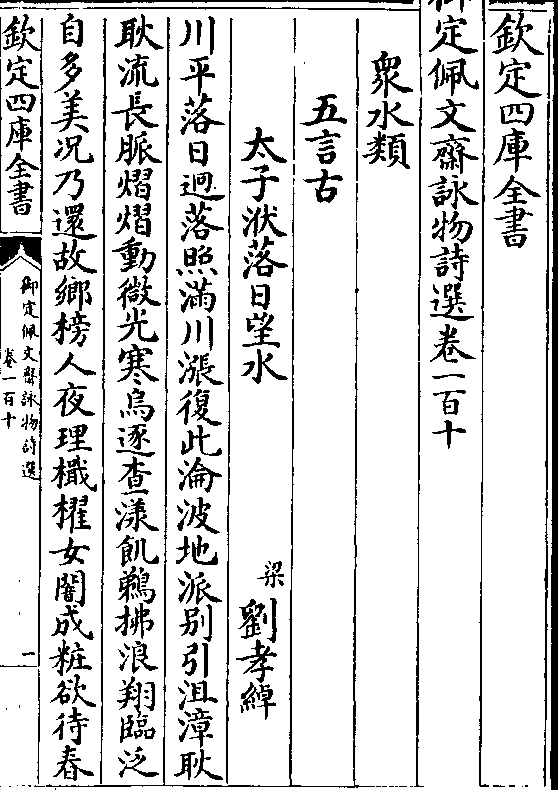 欽定四庫全書
御定佩文齋詠物詩選卷一百十
衆水類
五言古
太子洑落日望水 梁 劉孝綽
川平落日迥落照滿川漲復此淪波地派别引沮漳耿
耿流長脈熠熠動微光寒烏逐查漾飢鵜拂浪翔臨泛
自多美况乃還故鄉榜人夜理檝櫂女闇成粧欲待春
欽定四庫全書
御定佩文齋詠物詩選
卷一百十
一